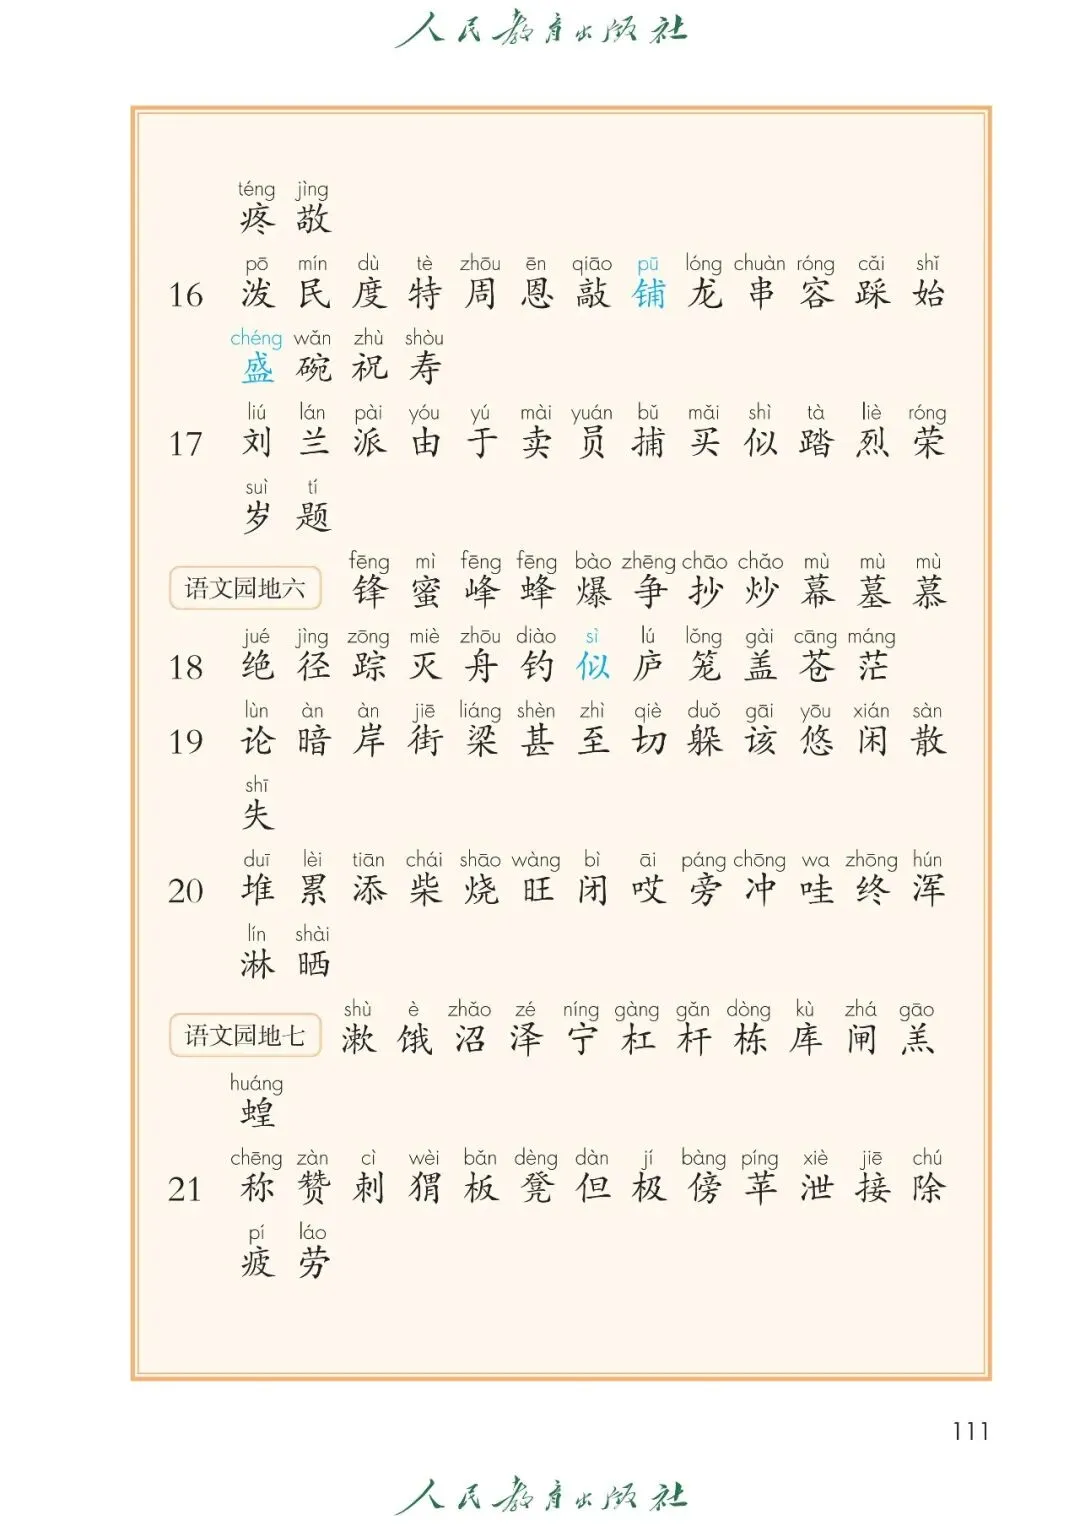 人民教育出版社
téng jìng
疼 敬
pō mín dù tè zhōu ēn qiāo pū lóng chuàn róng cǎi shǐ
16 泼 民 度 特 周 恩 敲 铺 龙 串 容 踩 始
chéng wǎn zhù shòu
盛 碗 祝 寿
liú lán pài yóu yú mài yuán bǔ mǎi shì tà liè róng
17 刘 兰 派 由 于 卖 员 捕 买 似 踏 烈 荣
suì tí
岁 题
fēng mì fēng fēng bào zhēng chāo chǎo mù mù mù
语文园地六 锋 蜜 峰 蜂 爆 争 抄 炒 幕 墓 慕
jué jìng zōng miè zhōu diào sì lú lǒng gài cāng máng
18 绝 径 踪 灭 舟 钓 似 庐 笼 盖 苍 茫
lùn àn àn jiē liáng shèn zhì qiè duǒ gāi yōu xián sàn
19 论 暗 岸 街 梁 甚 至 切 躲 该 悠 闲 散
shī
失
duī lèi tiān chái shāo wàng bì āi páng chōng wa zhōng hún
20 堆 累 添 柴 烧 旺 闭 哎 旁 冲 哇 终 浑
lín shài
淋 晒
shù è zhǎo zé níng gàng gǎn dòng kù zhá gāo
语文园地七 漱 饿 沼 泽 宁 杠 杆 栋 库 闸 羔
huáng
蝗
chēng zàn cì wèi bǎn dèng dàn jí bàng píng xiè jiē chú
21 称 赞 刺 猬 板 凳 但 极 傍 苹 泄 接 除
pí láo
疲 劳
111
人民教育出版社